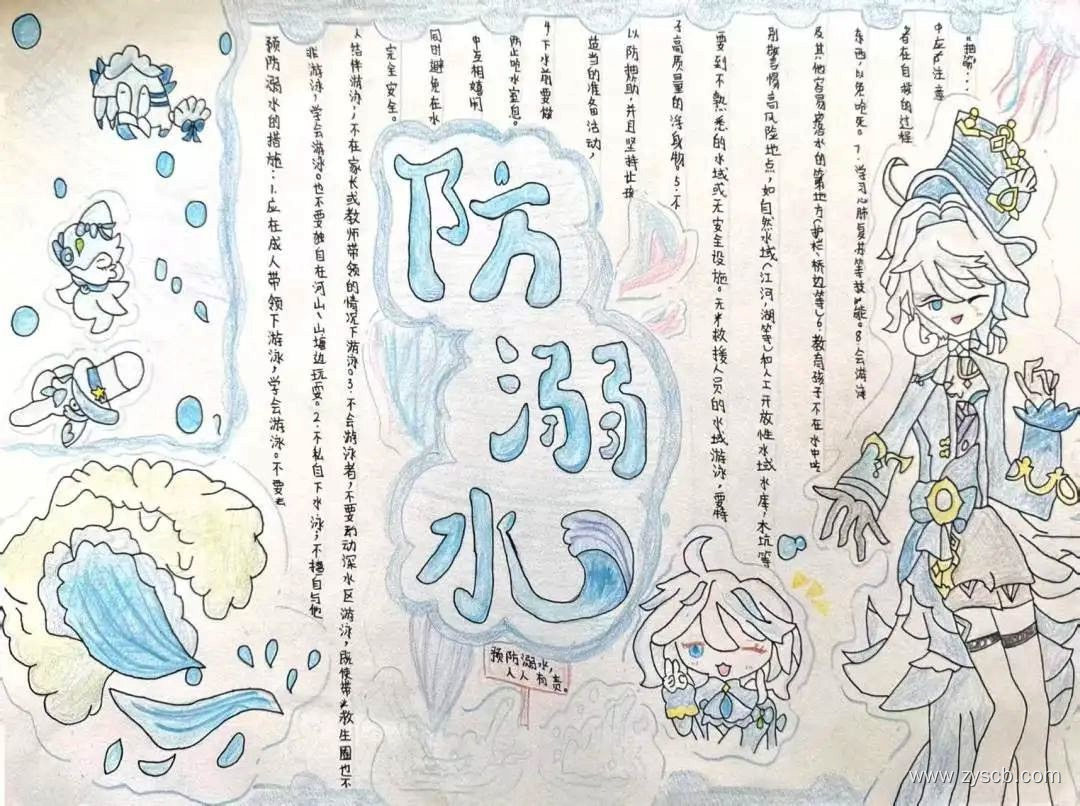 防溺水
预防溺水的措施：1.应在成人带领下游泳，学会游泳。不要去
非游泳，学会游泳。也不要独自在河山、山塘边玩耍。2.不私自下水泳，不擅自与他
人结伴游泳，不在家长或教师带领的情况下游泳。3.不会游泳者，不要到动深水区游泳，既使带救生圈也不
完全安全。
同时避免在水
中互相嬉闹
防止呛水窒息。
4下水前要做
适当的准备活动，
以防把助，并且坚持让孩
子高质量的浮身物 5.不
要到不熟悉的水域或无安全设施。无米救援人员的水域游泳，要特
别警惕高风险地点，如自然水域（江河，湖等）和人工开放性水域水库，水坑等
及其他容易落水的第地方（护栏、桥边等）6.教育孩子不在水中吃
东西，以免呛死。7.学习心肺复苏等技能。8.会游泳
者在自救的过程
中应注意
预防溺水，
人人有责。
www.zyscb.com